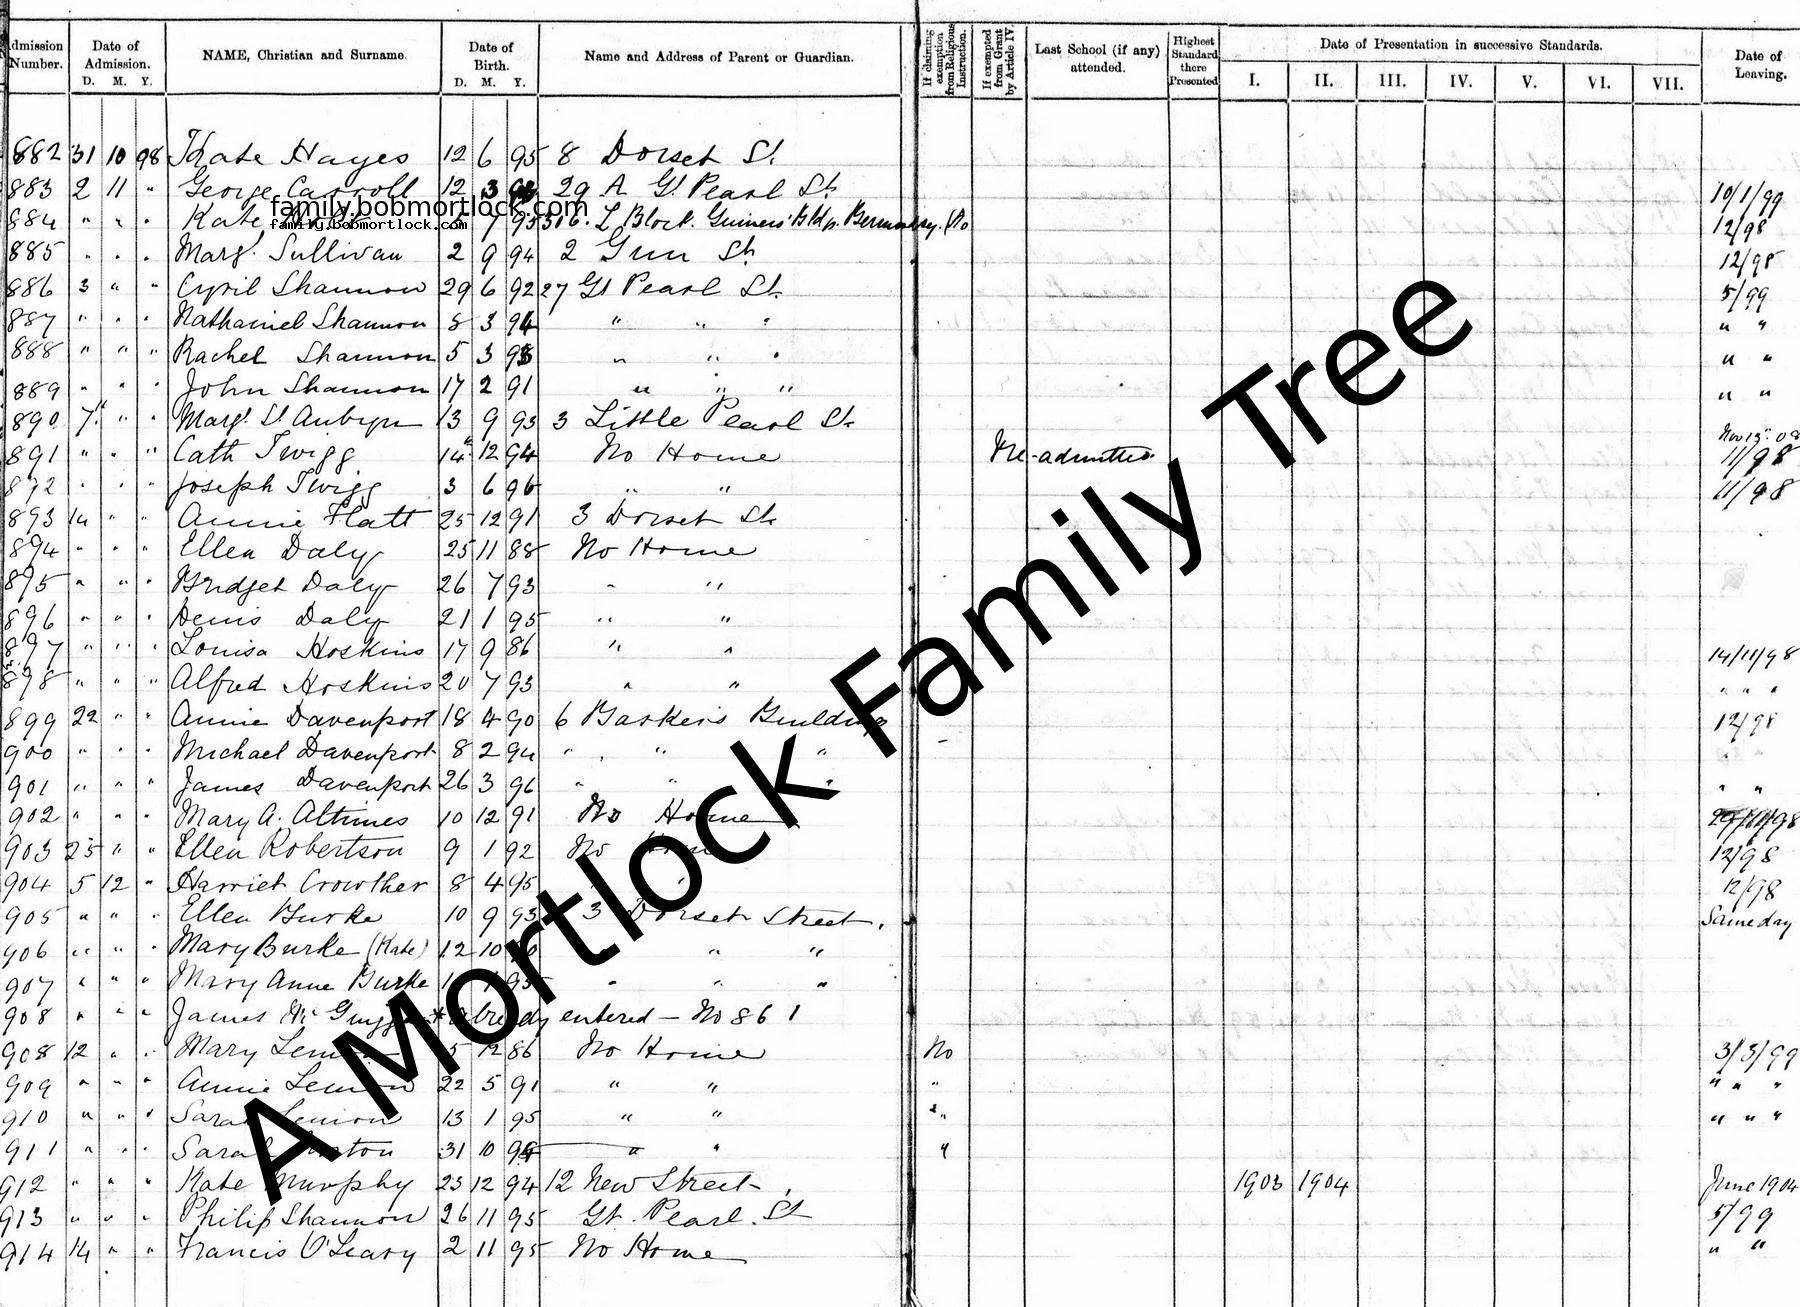 Admission Number. Date of Admission. D. M. Y. NAME, Christian and Surname. Date of Birth. D. M. Y. Name and Address of Parent or Guardian. If claiming exemption from Religious Instruction. If exempted from Grant by Article IV. Last School (if any) attended. Highest Standard there Presented Date of Presentation in successive Standards. I. II. III. IV. V. VI. VII. Date of Leaving.
882 31 10 98 Kate Hayes 12 6 95 8 Dorset St.
883 2 11 " George Carroll 12 3 29 A Gt Pearl St. 10/1/99
family.bobmortlock.com
884 " " " Kate 7 95 306. L Block. Guiness' Bldgs. No 12/98
family.bobmortlock.com
885 " " " Margt. Sullivan 2 9 94 2 Gun St. 12/98
886 3 " " Cyril Shannon 29 6 92 27 Gt Pearl St. 5/99
887 " " " Nathaniel Shannon 8 3 94 " " " " "
888 " " " Rachel Shannon 5 3 " " " " "
889 " " " John Shannon 17 2 91 " " " " "
890 7 " " Margt. St. Aubyn 13 9 93 3 Little Pearl St.
891 " " " Cath Twigg 14 12 94 No Home Re-admitted Nov 13 11/98
892 " " " Joseph Twigg 3 6 96 " " 11/98
893 14 " " Annie Flatt 25 12 91 3 Dorset St.
894 " " " Ellen Daly 25 11 88 No Home
895 " " " Bridget Daly 26 7 93 " "
896 " " " Denis Daly 21 1 95 " "
897 " " " Louisa Hoskins 17 9 86 " " 14/11/98
898 " " " Alfred Hoskins 20 7 93 " " " " "
899 22 " " Annie Davenport 18 4 90 6 Barkers Building 12/98
900 " " " Michael Davenport 8 2 94 " " " " "
901 " " " James Davenport 26 3 96 " " " " "
902 " " " Mary A. Altimes 10 12 91 No Home 29/11/98
903 25 " " Ellen Robertson 9 1 92 No Home 12/98
904 5 12 " Harriet Crowther 8 4 95 " 12/98
905 " " " Ellen Burke 10 9 93 3 Dorset Street. Same day
906 " " " Mary Burke (Kate) 12 10 " "
907 " " " Mary Anne Burke 95 " " "
908 " " " James Mc * already entered - No 861
908 12 " " Mary Lennon 5 12 86 No Home No 3/3/99
909 " " " Annie Lennon 22 5 91 " " " " " "
910 " " " Sarah Lennon 13 1 95 " " " " " "
911 " " " Sarah 31 10 " " "
912 " " " Kate Murphy 23 12 94 12 New Street. 1903 1904 June 1904
913 " " " Philip Shannon 26 11 95 Gt. Pearl. St 5/99
914 14 " " Francis O'Leary 2 11 95 No Home " "
A Mortlock Family Tree